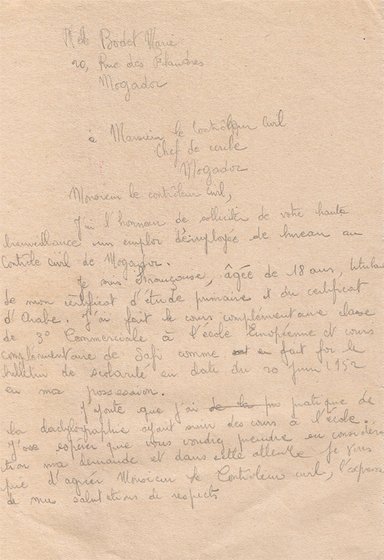 Melle Bodet Marie
20, Rue des
Mogador
à Monsieur le Contrôleur Civil
Chef de cercle
Mogador
Monsieur le contrôleur Civil,
J'ai l'honneur de solliciter de votre haute
bienveillance un emploi d'employée de bureau au
Contrôle Civil de Mogador.
Je suis Française, âgée de 18 ans, titulaire
de mon certificat d'étude primaire et du certificat
d'Arabe. J'ai fait le cours complémentaire classe
de 3° Commerciale à l'école Européenne et cours
complémentaire de Safi comme en fait foi le
bulletin de scolarité en date du 20 juin 1952
en ma possession.
J'ajoute que j'ai pratique de
la dactylographie ayant suivi des cours à l'école.
J'ose espérer que vous voudrez prendre en considéra-
tion ma demande et dans cette attente je vous
prie d'agréer Monsieur le Contrôleur civil, l'expression
de mes salutations de respects